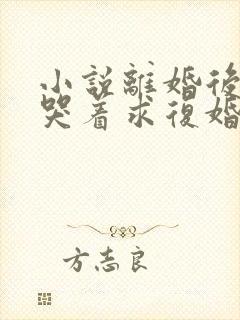 小説離婚後
哭着求復婚
方志良